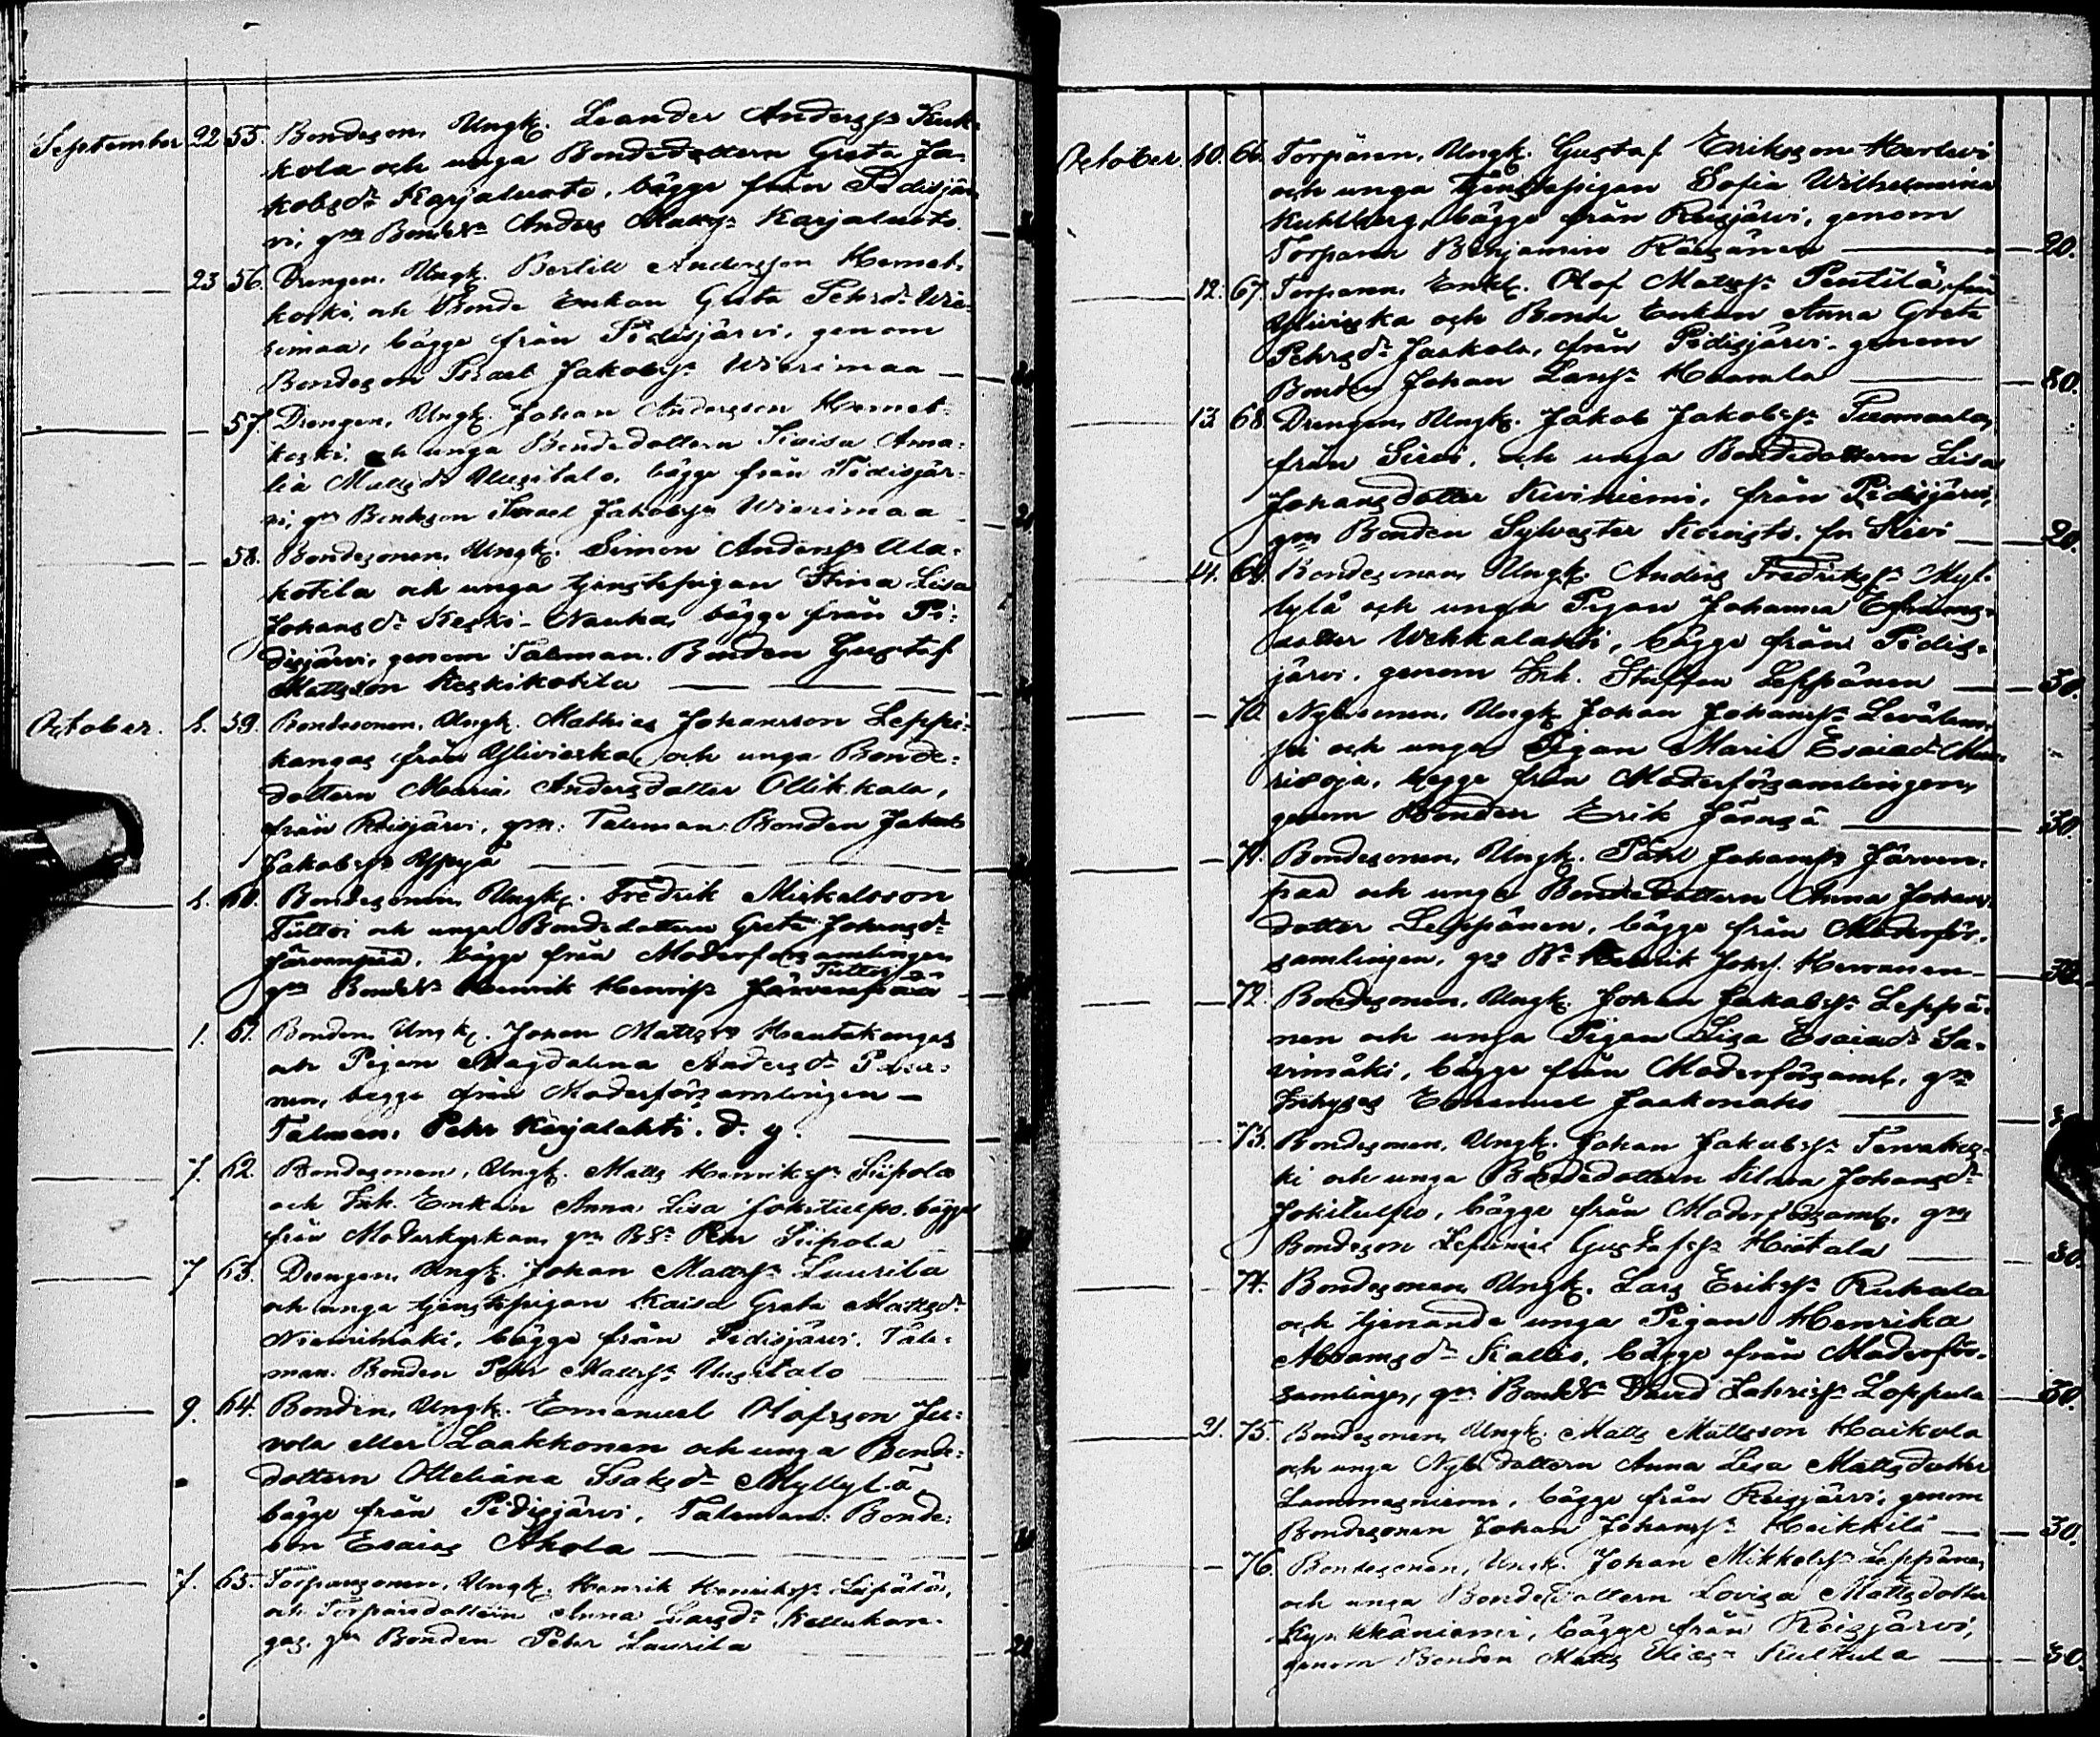 September 22 55. Bondeson, Ungk. Leander Anderss: Kuk-
kola och unga Bondedottern Greta Ja-
kobsdr Karjaluoto, bägge från Pidisjär-
vi, gm Bondes: Anders Mattss: Karjaluoto.
23 56. Drengen, Ungk. Bertill Andersson Hernet-
koski, och Bonde Enkan Greta Pehrsdr Wie-
rimaa, bägge från Pidisjärvi, genom
Bondeson Israel Jakobss: Wierimaa
57. Drengen, Ungk. Johan Andersson Hernet-
koski, och unga Bondedottern Kaisa Ama-
lia Mattsdr Uusitalo, bägge från Pidisjär-
vi, gm Bondeson Israel Jakobss: Wierimaa
58. Bondesonen, Ungk. Simon Anderss: Ala-
kotila och unga tjenstepigan Stina Lisa
Johansdr Keski-Nauha, bägge från Pi-
disjärvi, genom Taleman. Bonden Gustaf
Mattsson Keskikotila
October. 1. 59. Bondesonen, Ungk. Mathias Johansson Leppi-
kangas från Ylivieska och unga Bonde-
dottern Maria Andersdotter Ollikkala,
från Reisjärvi, gm: Taleman: Bonden Jakob
Jakobss: Yppyä
1. 60. Bondesonen, Ungk. Fredrik Mickelsson
Tuttoi och unga Bondedottern Greta Johansdr
Järvenpää, bägge från Moderförsamlingen
Tuttoi
gm Bondes: Henrik Henrikss: Järvenpää
1. 61. Bonden, Ungk. Johan Mattsson Hautakangas
och Pigan Magdalena Andersdr
nen, bägge från Moderförsamlingen
Taleman, Pehr Karjalahti. d. y.
7. 62. Bondesonen, Ungk. Matts Henrikss: Siipola
och Inh. Enkan Anna Lisa Jokitulppo, bägge
från Moderkyrkan, gm Bs: Pehr Siipola
7 63. Drengen, Ungk. Johan Mattss: Laurila
och unga tjenstepigan Kaisa Greta Mattsdr
Niemimäki, bägge från Pidisjärvi. Tale-
man. Bonden Pehr Mattss: Uusitalo
9. 64. Bonden, Ungk. Emanuel Olofsson Ju-
vola eller Laakkonen och unga Bonde-
dottern Otteliana Isaksdr Myllylä,
bägge från Pidisjärvi, Taleman: Bonde-
son Esaias Ahola
7. 65. Torparesonen, Ungk. Henrik Henrikss:
och Torparedottern Anna Larsdr Kellukan-
gas, gm Bonden Pehr Laurila
October. 10. 66. Torparen, Ungk. Gustaf Eriksson Herlevi
och unga tjenstepigan Sofia Wilhelmina
Kuhlberg, bägge från Reisjärvi, genom
Torparen Benjamin Räisänen 20.
12. 67. Torparen, Enkl. Olof Mattss: Pentilä, från
Ylivieska och Bonde Enkan Anna Greta
Pehrsdr Jaakola, från Pidisjärvi, genom
Bonden Johan Larss: Haarala 80.
13. 68. Drengen, Ungk. Jakob Jakobss: Tuomaala,
från Sievi, och unga Bondedottern Lisa
Johansdotter Kiviniemi, från Pidisjärvi,
gm Bonden Sylvester Koivisto, fr. Sievi 20.
14. 69. Bondesonen, Ungk. Anders Fredrikss: Myl-
lylä och unga Pigan Johanna Efraims-
dotter Wehkalahti, bägge från Pidis-
järvi, genom Inh. Staffan Leppänen 30.
70. Nyb.sonen, Ungk. Johan Johanss: Levälam-
pi och unga Pigan Maria Esaiadr
rioja, bägge från Moderförsamlingen,
genom Bonden Erik Jäneså 30.
71. Bondesonen, Ungk. Påhl Johanss: Järven-
pää och unga Bondedottern Anna Johans-
dotter Leppänen, bägge från Moderför-
samlingen, gm Bs: Henrik Johs: Herranen 30.
72. Bondesonen, Ungk. Johan Jakobss: Leppä-
nen och unga Pigan Lisa Esaiadr Sa-
vimäki, bägge från Moderförsaml., gm
Inhyses Emanuel Jaakonaho
73. Bondesonen, Ungk. Johan Jakobss: Tervakos-
ki och unga Bondedottern Stina Johansdr
Jokitulppo, bägge från Moderförsaml., gm
Bondeson Zefanias Gustafss: Hietala 30.
74. Bondesonen, Ungk. Lars Erikss: Ruhala
och tjenande unga Pigan Henrika
Abramsdr Kallio, bägge från Moderför-
samlingen, gm Bondes: David Zachriss: Loppula 30.
21. 75. Bondesonen, Ungk. Matts Mattsson Haikola
och unga Nyb.dottern Anna Lisa Mattsdotter
Lammasniemi, bägge från Reisjärvi, genom
Bondesonen Johan Johanss: Heikkilä 30.
76. Bondesonen, Ungk. Johan Mikkelss: Leppänen
och unga Bondedottern Lovisa Mattsdotter
Kinkkäniemi, bägge från Reisjärvi,
genom Bonden Matts Eliass: Kulkula 30.